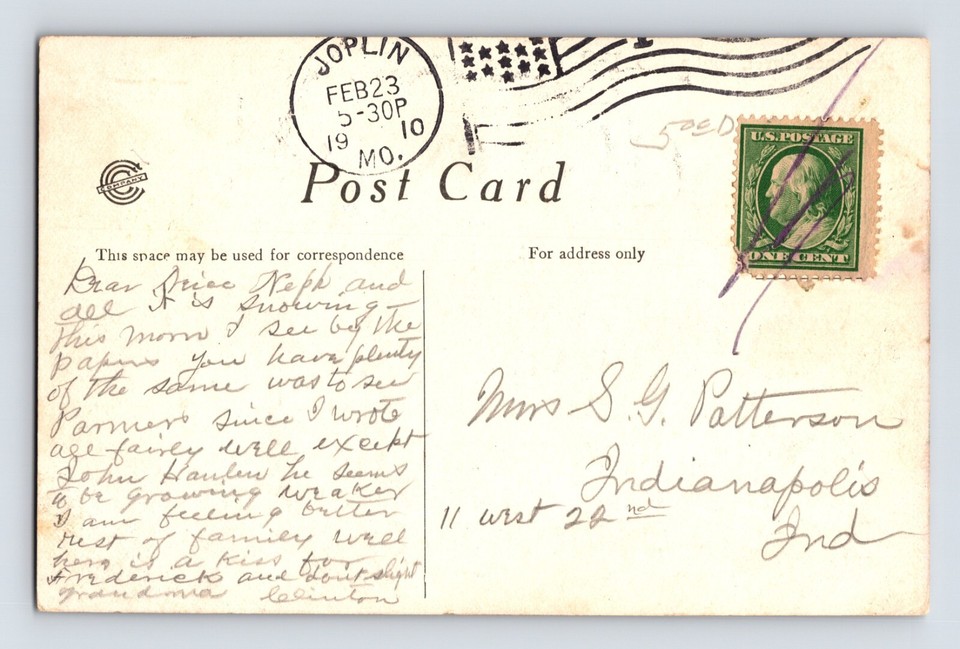 JOPLIN
FEB 23
5-30P
19 10
MO.
50¢D
U.S. POSTAGE
ONE CENT
COMPANY
Post Card
This space may be used for correspondence
For address only
Dear Neice Neph and
all it is snowing
this morn I see by the
papers you have plenty
of the same was to see
Parmers since I wrote
all fairly well except
John Hanlen he seems
to be growing weaker
I am feeling better
rest of family well
here is a kiss for
Frederick and dont slight
grandma Clinton
Mrs S. G. Patterson
Indianapolis
11 west 22nd
Ind